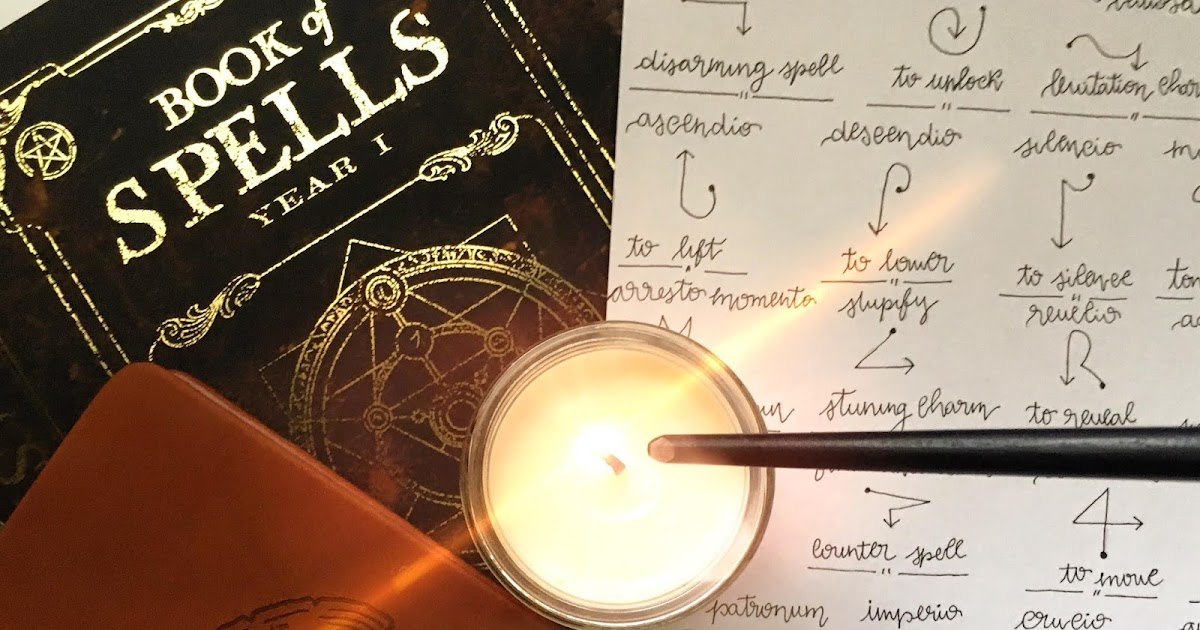 BOOK of
SPELLS
YEAR I
disarming spell
to unlock
levitation
ascendio
descendio
silencio
to lift
to lower
to silence
arresto momento
stupify
revelio
stuning charm
to reveal
counter spell
to move
patronum
imperio
crucio